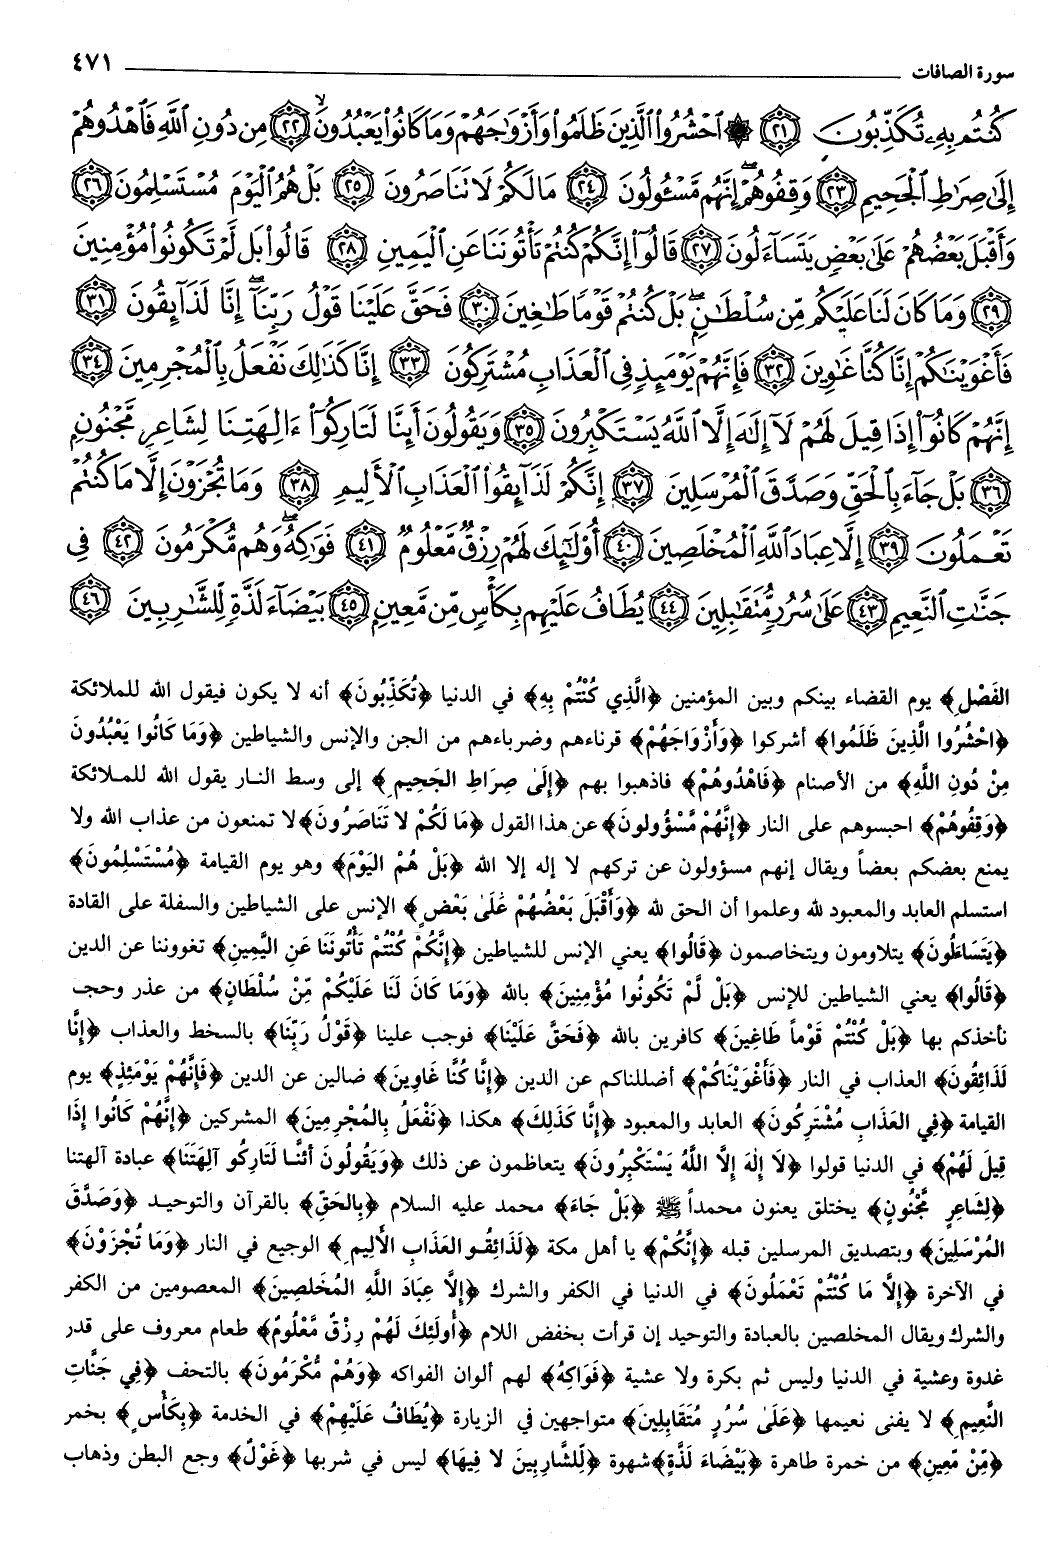 سورة الصافات ٤٧١
كُنتُم بِهِۦ تُكَذِّبُونَ ﴿٢١﴾ ۞ ٱحْشُرُوا۟ ٱلَّذِينَ ظَلَمُوا۟ وَأَزْوَٰجَهُمْ وَمَا كَانُوا۟ يَعْبُدُونَ ﴿٢٢﴾ مِن دُونِ ٱللَّهِ فَٱهْدُوهُمْ
إِلَىٰ صِرَٰطِ ٱلْجَحِيمِ ﴿٢٣﴾ وَقِفُوهُمْ ۖ إِنَّهُم مَّسْـُٔولُونَ ﴿٢٤﴾ مَا لَكُمْ لَا تَنَاصَرُونَ ﴿٢٥﴾ بَلْ هُمُ ٱلْيَوْمَ مُسْتَسْلِمُونَ ﴿٢٦﴾
وَأَقْبَلَ بَعْضُهُمْ عَلَىٰ بَعْضٍ يَتَسَآءَلُونَ ﴿٢٧﴾ قَالُوٓا۟ إِنَّكُمْ كُنتُمْ تَأْتُونَنَا عَنِ ٱلْيَمِينِ ﴿٢٨﴾ قَالُوا۟ بَل لَّمْ تَكُونُوا۟ مُؤْمِنِينَ
﴿٢٩﴾ وَمَا كَانَ لَنَا عَلَيْكُم مِّن سُلْطَٰنٍۭ ۖ بَلْ كُنتُمْ قَوْمًا طَٰغِينَ ﴿٣٠﴾ فَحَقَّ عَلَيْنَا قَوْلُ رَبِّنَآ ۖ إِنَّا لَذَآئِقُونَ ﴿٣١﴾
فَأَغْوَيْنَٰكُمْ إِنَّا كُنَّا غَٰوِينَ ﴿٣٢﴾ فَإِنَّهُمْ يَوْمَئِذٍ فِى ٱلْعَذَابِ مُشْتَرِكُونَ ﴿٣٣﴾ إِنَّا كَذَٰلِكَ نَفْعَلُ بِٱلْمُجْرِمِينَ ﴿٣٤﴾
إِنَّهُمْ كَانُوٓا۟ إِذَا قِيلَ لَهُمْ لَآ إِلَٰهَ إِلَّا ٱللَّهُ يَسْتَكْبِرُونَ ﴿٣٥﴾ وَيَقُولُونَ أَئِنَّا لَتَارِكُوٓا۟ ءَالِهَتِنَا لِشَاعِرٍ مَّجْنُونٍۭ
﴿٣٦﴾ بَلْ جَآءَ بِٱلْحَقِّ وَصَدَّقَ ٱلْمُرْسَلِينَ ﴿٣٧﴾ إِنَّكُمْ لَذَآئِقُوا۟ ٱلْعَذَابِ ٱلْأَلِيمِ ﴿٣٨﴾ وَمَا تُجْزَوْنَ إِلَّا مَا كُنتُمْ
تَعْمَلُونَ ﴿٣٩﴾ إِلَّا عِبَادَ ٱللَّهِ ٱلْمُخْلَصِينَ ﴿٤٠﴾ أُو۟لَٰٓئِكَ لَهُمْ رِزْقٌ مَّعْلُومٌ ﴿٤١﴾ فَوَٰكِهُ ۖ وَهُم مُّكْرَمُونَ ﴿٤٢﴾ فِى
جَنَّٰتِ ٱلنَّعِيمِ ﴿٤٣﴾ عَلَىٰ سُرُرٍ مُّتَقَٰبِلِينَ ﴿٤٤﴾ يُطَافُ عَلَيْهِم بِكَأْسٍ مِّن مَّعِينٍۭ ﴿٤٥﴾ بَيْضَآءَ لَذَّةٍ لِّلشَّٰرِبِينَ ﴿٤٦﴾
الفَصْلِ﴾ يوم القضاء بينكم وبين المؤمنين ﴿الَّذِي كُنْتُمْ بِهِ﴾ في الدنيا ﴿تُكَذِّبُونَ﴾ أنه لا يكون فيقول الله للملائكة
﴿احْشُرُوا الَّذِينَ ظَلَمُوا﴾ أشركوا ﴿وَأَزْوَاجَهُمْ﴾ قرناءهم وضرباءهم من الجن والإنس والشياطين ﴿وَمَا كَانُوا يَعْبُدُونَ
مِنْ دُونِ اللَّهِ﴾ من الأصنام ﴿فَاهْدُوهُمْ﴾ فاذهبوا بهم ﴿إِلَىٰ صِرَاطِ الجَحِيمِ﴾ إلى وسط النار يقول الله للملائكة
﴿وَقِفُوهُمْ﴾ احبسوهم على النار ﴿إِنَّهُمْ مَّسْؤُولونَ﴾ عن هذا القول ﴿مَا لَكُمْ لا تَنَاصَرُونَ﴾ لا تمنعون من عذاب الله ولا
يمنع بعضكم بعضاً ويقال إنهم مسؤولون عن تركهم لا إله إلا الله ﴿بَلْ هُمُ اليَوْمَ﴾ وهو يوم القيامة ﴿مُسْتَسْلِمُونَ﴾
استسلم العابد والمعبود لله وعلموا أن الحق لله ﴿وَأَقْبَلَ بَعْضُهُمْ عَلَىٰ بَعْضٍ﴾ الإنس على الشياطين والسفلة على القادة
﴿يَتَسَاءَلُونَ﴾ يتلاومون ويتخاصمون ﴿قَالُوا﴾ يعني الإنس للشياطين ﴿إِنَّكُمْ كُنْتُمْ تَأْتُونَنَا عَنِ اليَمِينِ﴾ تغووننا عن الدين
﴿قَالُوا﴾ يعني الشياطين للإنس ﴿بَلْ لَّمْ تَكُونُوا مُؤْمِنِينَ﴾ بالله ﴿وَمَا كَانَ لَنَا عَلَيْكُمْ مِّنْ سُلْطَانٍ﴾ من عذر وحجب
نأخذكم بها ﴿بَلْ كُنْتُمْ قَوْماً طَاغِينَ﴾ كافرين بالله ﴿فَحَقَّ عَلَيْنَا﴾ فوجب علينا ﴿قَوْلُ رَبِّنَا﴾ بالسخط والعذاب ﴿إِنَّا
لَذَائِقُونَ﴾ العذاب في النار ﴿فَأَغْوَيْنَاكُمْ﴾ أضللناكم عن الدين ﴿إِنَّا كُنَّا غَاوِينَ﴾ ضالين عن الدين ﴿فَإِنَّهُمْ يَوْمَئِذٍ﴾ يوم
القيامة ﴿فِي العَذَابِ مُشْتَرِكُونَ﴾ العابد والمعبود ﴿إِنَّا كَذَلِكَ﴾ هكذا ﴿نَفْعَلُ بِالمُجْرِمِينَ﴾ المشركين ﴿إِنَّهُمْ كَانُوا إِذَا
قِيلَ لَهُمْ﴾ في الدنيا قولوا ﴿لَا إِلٰهَ إِلَّا اللَّهُ يَسْتَكْبِرُونَ﴾ يتعاظمون عن ذلك ﴿وَيَقُولُونَ أَئنَّا لَتَارِكُو آلِهَتِنَا﴾ عبادة آلهتنا
﴿لِشَاعِرٍ مَّجْنُونٍ﴾ يختلق يعنون محمداً ﷺ ﴿بَلْ جَاءَ﴾ محمد عليه السلام ﴿بِالحَقِّ﴾ بالقرآن والتوحيد ﴿وَصَدَّقَ
المُرْسَلِينَ﴾ وبتصديق المرسلين قبله ﴿إِنَّكُمْ﴾ يا أهل مكة ﴿لَذَائِقُو العَذَابِ الأَلِيمِ﴾ الوجيع في النار ﴿وَمَا تُجْزَوْنَ﴾
في الآخرة ﴿إِلَّا مَا كُنْتُمْ تَعْمَلُونَ﴾ في الدنيا في الكفر والشرك ﴿إِلَّا عِبَادَ اللَّهِ المُخْلَصِينَ﴾ المعصومين من الكفر
والشرك ويقال المخلصين بالعبادة والتوحيد إن قرأت بخفض اللام ﴿أُولَئِكَ لَهُمْ رِزْقٌ مَّعْلُومٌ﴾ طعام معروف على قدر
غدوة وعشية في الدنيا وليس ثم بكرة ولا عشية ﴿فَوَاكِهُ﴾ لهم ألوان الفواكه ﴿وَهُمْ مُّكْرَمُونَ﴾ بالتحف ﴿فِي جَنَّاتِ
النَّعِيمِ﴾ لا يفنى نعيمها ﴿عَلَىٰ سُرُرٍ مُتَقَابِلِينَ﴾ متواجهين في الزيارة ﴿يُطَافُ عَلَيْهِمْ﴾ في الخدمة ﴿بِكَأْسٍ﴾ بخمر
﴿مِّنْ مَّعِينٍ﴾ من خمرة طاهرة ﴿بَيْضَاءَ لَذَّةٍ﴾ شهوة ﴿لِّلشَّارِبِينَ لا فِيهَا﴾ ليس في شربها ﴿غَوْلٌ﴾ وجع البطن وذهاب